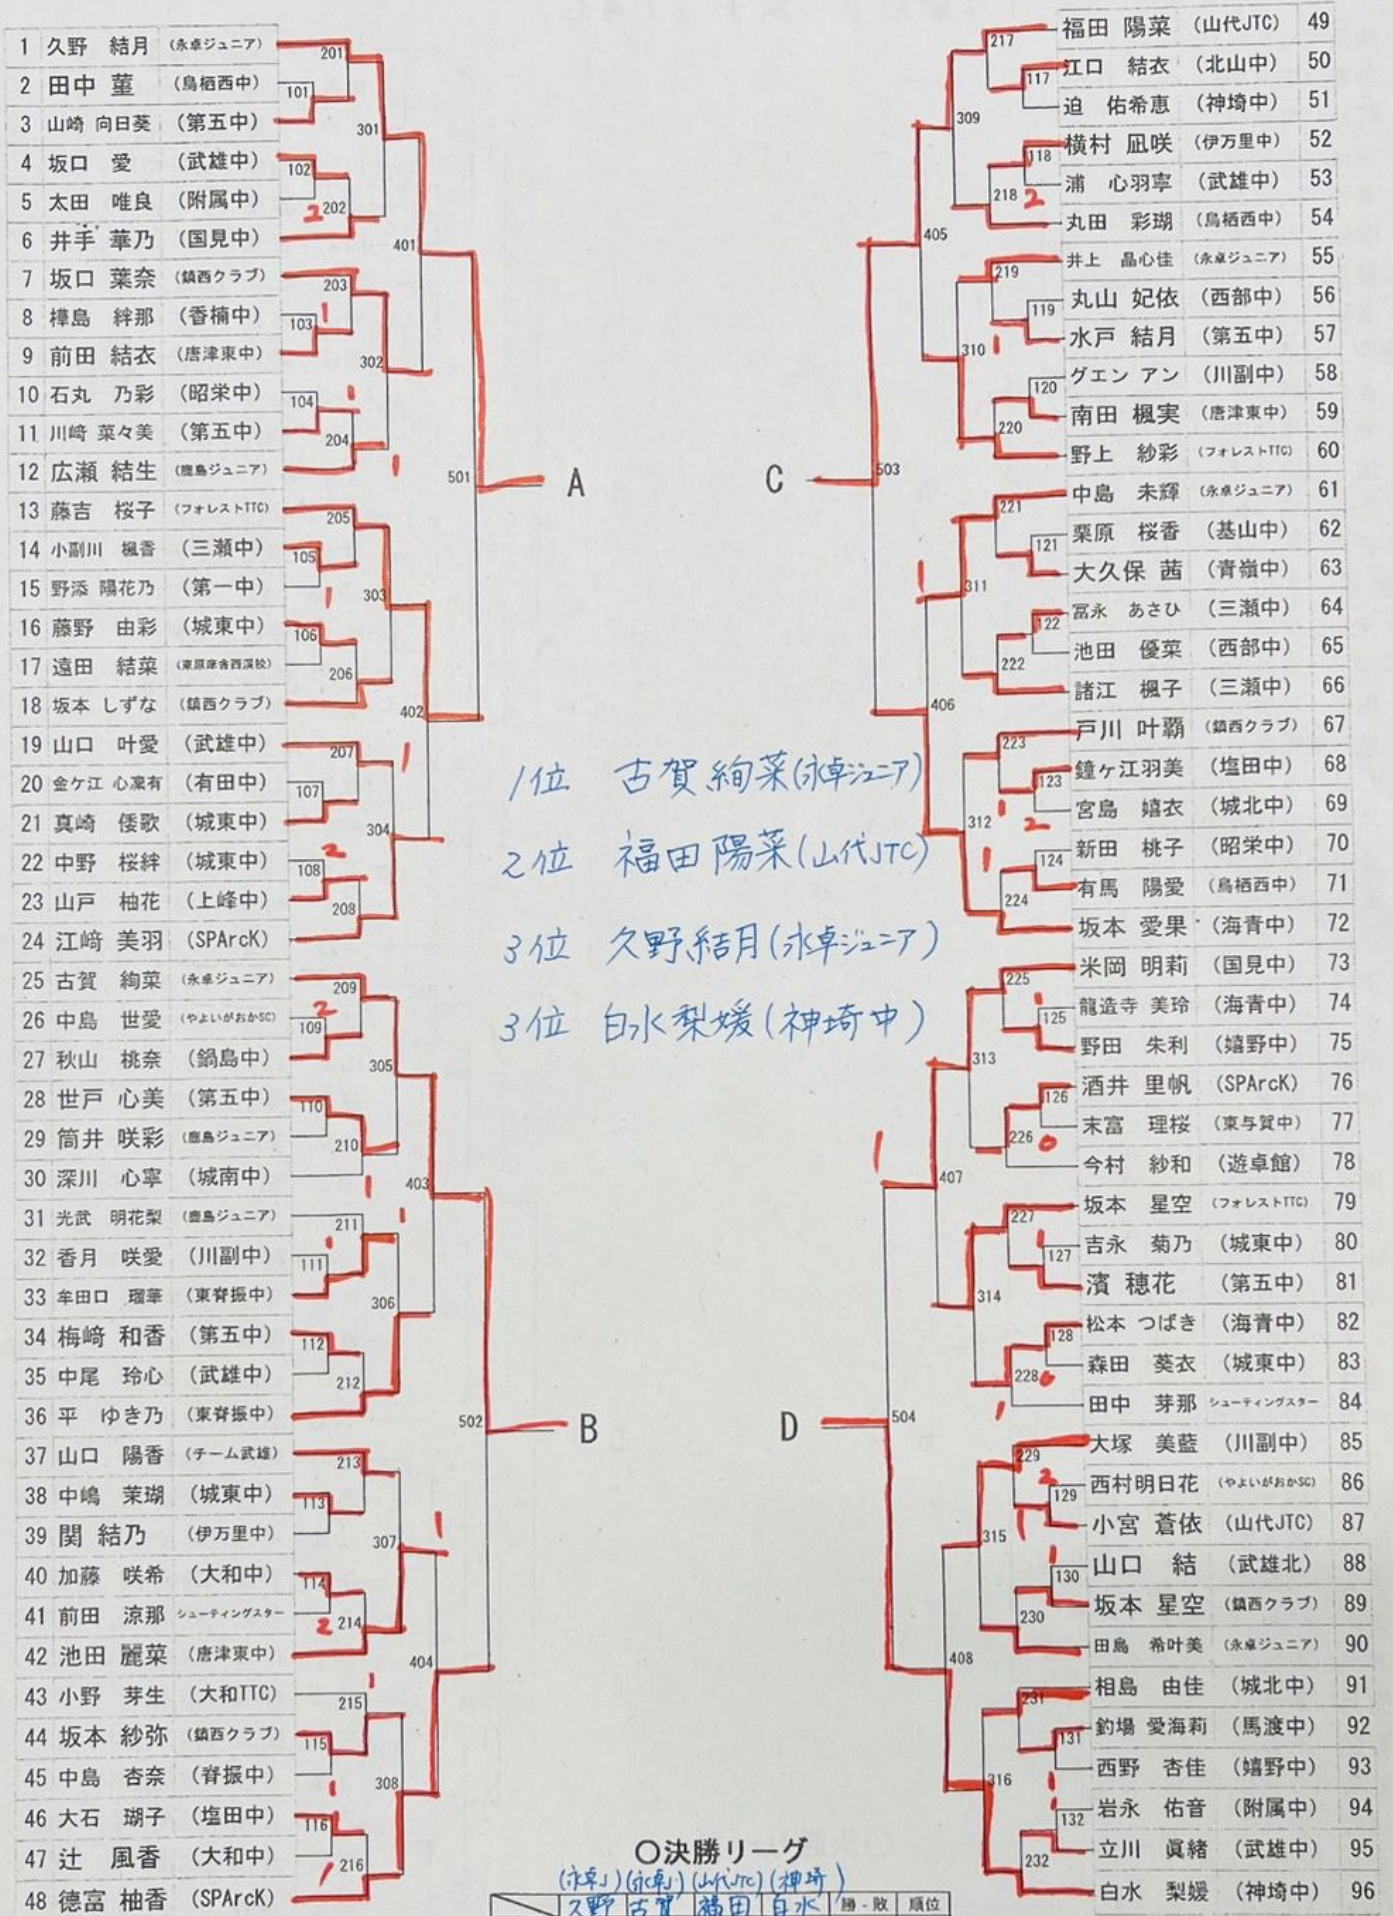 1 久野 結月 (永卓ジュニア)
2 田中 菫 (鳥栖西中)
3 山崎 向日葵 (第五中)
4 坂口 愛 (武雄中)
5 太田 唯良 (附属中)
6 井手 華乃 (国見中)
7 坂口 葉奈 (鎮西クラブ)
8 樺島 絆那 (香楠中)
9 前田 結衣 (唐津東中)
10 石丸 乃彩 (昭栄中)
11 川﨑 菜々美 (第五中)
12 広瀬 結生 (鹿島ジュニア)
13 藤吉 桜子 (フォレストTTC)
14 小副川 楓香 (三瀬中)
15 野添 陽花乃 (第一中)
16 藤野 由彩 (城東中)
17 遠田 結菜
18 坂本 しずな (鎮西クラブ)
19 山口 叶愛 (武雄中)
20 金ケ江 心凜有 (有田中)
21 真崎 倭歌 (城東中)
22 中野 桜絆 (城東中)
23 山戸 柚花 (上峰中)
24 江﨑 美羽 (SPArcK)
25 古賀 絢菜 (永卓ジュニア)
26 中島 世愛 (やよいがおかSC)
27 秋山 桃奈 (鍋島中)
28 世戸 心美 (第五中)
29 筒井 咲彩 (鹿島ジュニア)
30 深川 心寧 (城南中)
31 光武 明花梨 (鹿島ジュニア)
32 香月 咲愛 (川副中)
33 牟田口 瑠華 (東脊振中)
34 梅﨑 和香 (第五中)
35 中尾 玲心 (武雄中)
36 平 ゆき乃 (東脊振中)
37 山口 陽香 (チーム武雄)
38 中嶋 茉瑚 (城東中)
39 関 結乃 (伊万里中)
40 加藤 咲希 (大和中)
41 前田 涼那 シューティングスター
42 池田 麗菜 (唐津東中)
43 小野 芽生 (大和TTC)
44 坂本 紗弥 (鎮西クラブ)
45 中島 杏奈 (脊振中)
46 大石 瑚子 (塩田中)
47 辻 風香 (大和中)
48 德富 柚香 (SPArcK)
101
102
103
104
105
106
107
108
109
110
111
112
113
114
115
116
201
202 2
203 1
204 1
205
206 1
207
208 2
209 2
210
211 1
212
213
214 2
215
216 1
301
302
303
304
305
306
307
308
401
402
403
404
501
502
A
B
C
D
1位 古賀絢菜(永卓ジュニア)
2位 福田陽菜(山代JTC)
3位 久野結月(永卓ジュニア)
3位 白水梨媛(神埼中)
503
504
405
406
407
408
309
310
311
312
313
314
315
316
217
218 2
219
220
221
222
223
224
225
226 0
227
228
229
230
231
232
117
118
119
120
121
122
123
124
125
126
127
128
129
130
131
132
福田 陽菜 (山代JTC) 49
江口 結衣 (北山中) 50
迫 佑希恵 (神埼中) 51
横村 凪咲 (伊万里中) 52
浦 心羽寧 (武雄中) 53
丸田 彩瑚 (鳥栖西中) 54
井上 晶心佳 (永卓ジュニア) 55
丸山 妃依 (西部中) 56
水戸 結月 (第五中) 57
グエン アン (川副中) 58
南田 楓実 (唐津東中) 59
野上 紗彩 (フォレストTTC) 60
中島 未輝 (永卓ジュニア) 61
栗原 桜香 (基山中) 62
大久保 茜 (青嶺中) 63
冨永 あさひ (三瀬中) 64
池田 優菜 (西部中) 65
諸江 楓子 (三瀬中) 66
戸川 叶覇 (鎮西クラブ) 67
鐘ヶ江羽美 (塩田中) 68
宮島 嬉衣 (城北中) 69
新田 桃子 (昭栄中) 70
有馬 陽愛 (鳥栖西中) 71
坂本 愛果 (海青中) 72
米岡 明莉 (国見中) 73
龍造寺 美玲 (海青中) 74
野田 朱利 (嬉野中) 75
酒井 里帆 (SPArcK) 76
末富 理桜 (東与賀中) 77
今村 紗和 (遊卓館) 78
坂本 星空 (フォレストTTC) 79
吉永 菊乃 (城東中) 80
濱 穂花 (第五中) 81
松本 つばき (海青中) 82
森田 葵衣 (城東中) 83
田中 芽那 シューティングスター 84
大塚 美藍 (川副中) 85
西村明日花 (やよいがおかSC) 86
小宮 蒼依 (山代JTC) 87
山口 結 (武雄北) 88
坂本 星空 (鎮西クラブ) 89
田島 希叶美 (永卓ジュニア) 90
相島 由佳 (城北中) 91
釣場 愛海莉 (馬渡中) 92
西野 杏佳 (嬉野中) 93
岩永 佑音 (附属中) 94
立川 眞緒 (武雄中) 95
白水 梨媛 (神埼中) 96
〇決勝リーグ
(永卓J) (永卓J) (山代JTC) (神埼)
久野 古賀 福田 白水 勝-敗 順位